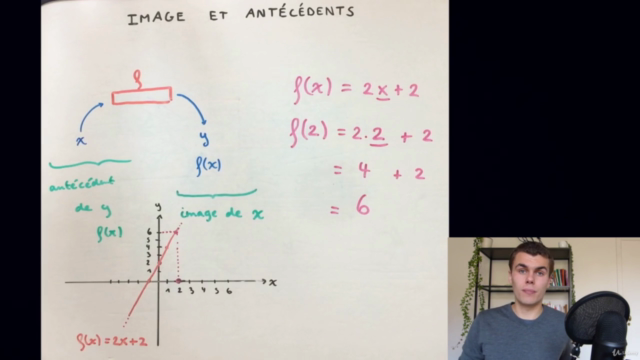 IMAGE ET ANTÉCÉDENTS
f
x
y
f(x)
antécédent
de y
f(x)
image de x
f(x) = 2x + 2
f(2) = 2.2 + 2
= 4 + 2
= 6
y
6
5
4
3
2
1
1 2 3 4 5 6
x
f(x) = 2x + 2